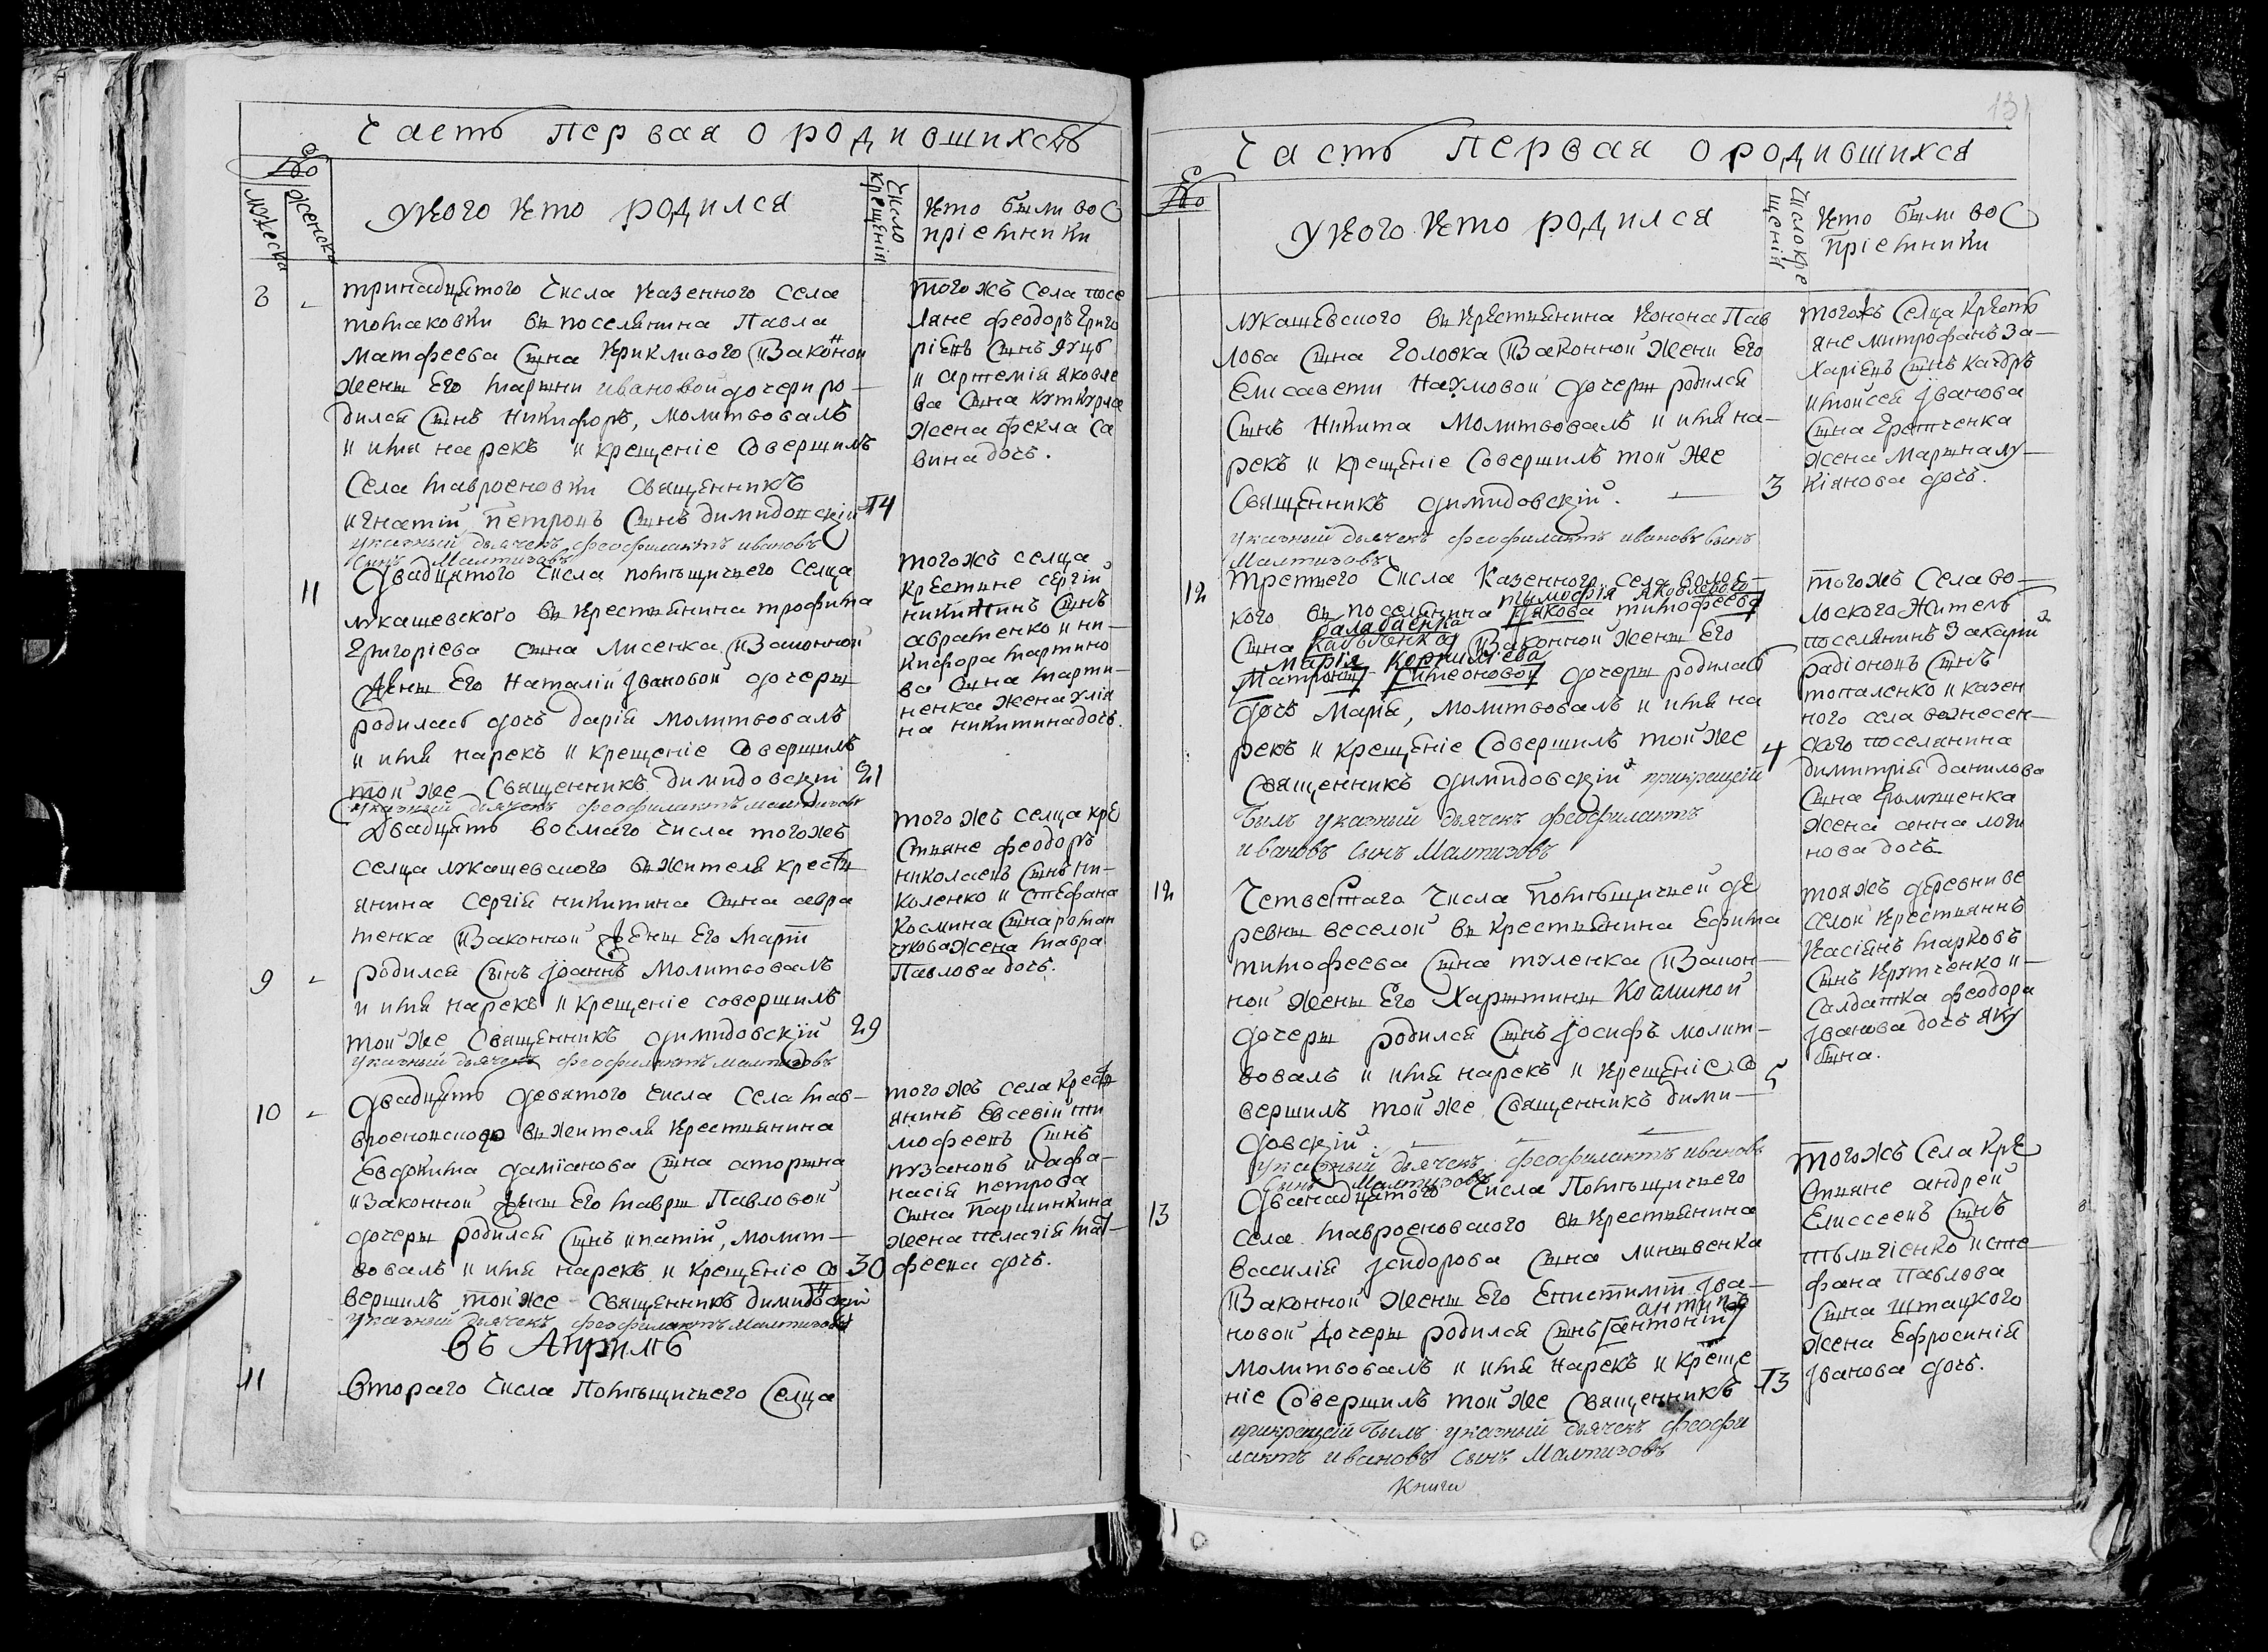 Часть первая о родившихся
№
мужеска
женска
У кого кто родился
Число крещенія
Кто были вос
пріемники
8 -
тринадцятого числа казенного села
томаковки въ поселянина Павла
матфеева сына крикливого изаконои
жены Его марыи ивановои дочери ро-
дился сынъ никифоръ, молитвовалъ
и имя нарекъ и крещеніе совершилъ
села мавроеновки священникъ
игнатій петровъ сынъ димидовскій 14
указный дьячекъ феофилактъ ивановъ
сынъ Малтизовъ
того жъ села посе
ляне феодоръ григо
ріевъ сынъ яуцъ
и артемія яковле
ва сына куткурла
жена фекла са
вина дочь.
11
двадцятого числа помѣщичьего селца
лукашевского въ крестьянина трофима
Григоріева сына лисенка изаконной
жены Его Наталіи Jвановой дочеры
родиласъ дочь дарія молитвовалъ
и имя нарекъ и крещеніе совершилъ
той же священникъ димидовскій 21
указный дьячекъ феофилактъ малтизовъ
того жъ селца
крестяне сергій
никитинъ сынъ
авраменко и ни-
кифора мартино
ва сына марти-
ненка жена улія
на никитина дочь.
двадцять восмаго числа того жъ
селца лукашевского въ жителя кресть
янина сергія никитина сына авра
менка изаконной жены Его март
9 -
родился сынъ Jоаннъ молитвовалъ
и имя нарекъ и крещеніе совершилъ
той же священникъ димидовскій 29
указный дьячекъ феофилактъ малтизовъ
того жъ селца кре
стяне феодоръ
николаевъ сынъ ни-
коленко и стефана
космина сына роман
чукова жена мавра
Павлова дочь.
10 -
двадцять девятого числа села мав-
роеновского въ жителя крестьянина
Евдокима даміанова сына
изаконной жены Его мавры Павловой
дочеры родился сынъ ипатій, молит-
вовалъ и имя нарекъ и крещеніе со 30
вершилъ той же священникъ димидовскій
указный дьячекъ феофилактъ Малтизовъ
того жъ села кресть
янинъ Евсевій ти
мофеевъ сынъ
пузановъ и афа-
насія петрова
сына паршинкина
жена пелагія мат-
феева дочь.
въ Априлѣ
11
втораго числа Помѣщичьего селца
131
Часть первая о родившихся
№
У кого кто родился
Число кре
щенія
Кто были вос
пріемники
лукашевского въ крестьянина конона Пав
лова сына головка изаконной жени Его
Елисавети наумовой дочеры родился
сынъ никита молитвовалъ и имя на-
рекъ и крещеніе совершилъ той же
священникъ димидовскій. - 3
указный дьячекъ феофилактъ ивановъ сынъ
Малтизовъ
тогожъ селца кресть
яне митрофанъ за-
харіевъ сынъ
и моисея Jванова
сына
жена марына лу-
кіянова дочь.
12
третьего числа казенного села волос-
тымофія яковлевого
кого въ поселянина Якова тимофеева
балабаенка
сына изаконной жены Его
марія Корнилієва
Матроны Симеоновой дочеры родиласъ
дочь марія, молитвовалъ и имя на
рекъ и крещеніе совершилъ той же 4
священникъ димидовскій прикрещеіи
былъ указный дьячекъ феофилактъ
ивановъ сынъ Малтизовъ
того жъ села во-
лоского житель
поселянинъ захарій
радіоновъ сынъ
топаленко и казен
ного села вознесен-
ского поселянина
димитрія данилова
сына
жена анна логи
нова дочь
12
четвертаго числа помѣщичьей де
ревны веселой въ крестьянина Ефима
тимофеева сына туленка изакон-
ной жены Его Харытины Косминой
дочеры родился сынъ Jосифъ молит-
вовалъ и имя нарекъ и крещеніе со 5
вершилъ той же священникъ дими-
довскій.
указный дьячекъ феофилактъ ивановъ
сынъ Малтизовъ
тояжъ деревни ве
селой крестьянинъ
касіянъ марковъ
сынъ крутченко и-
салдатка феодора
Jванова дочь яку
бына.
13
дванадцятого числа Помѣщичьего
села мавроеновского въ крестьянина
василія Jсидорова сына линывенка
изаконной жены Его Епистиміи Jва-
антипъ
новой дочеры родился сынъ антоній
молитвовалъ и имя нарекъ и креще
ніе совершилъ той же священникъ 13
прикрещеіи былъ указный дьячекъ феофи
лактъ ивановъ сынъ Малтизовъ
того жъ села кре
стяне андрей
Елисеевъ сынъ
и сте
фана павлова
сына штацкого
жена Ефросинія
Jванова дочь.
книги